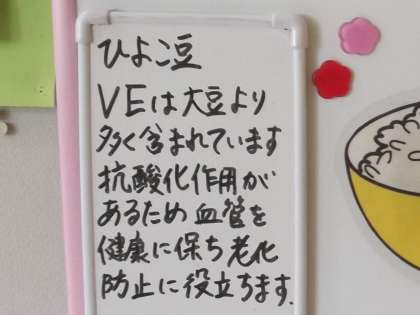 ひよこ豆
VEは大豆より
多く含まれています
抗酸化作用が
あるため血管を
健康に保ち老化
防止に役立ちます.